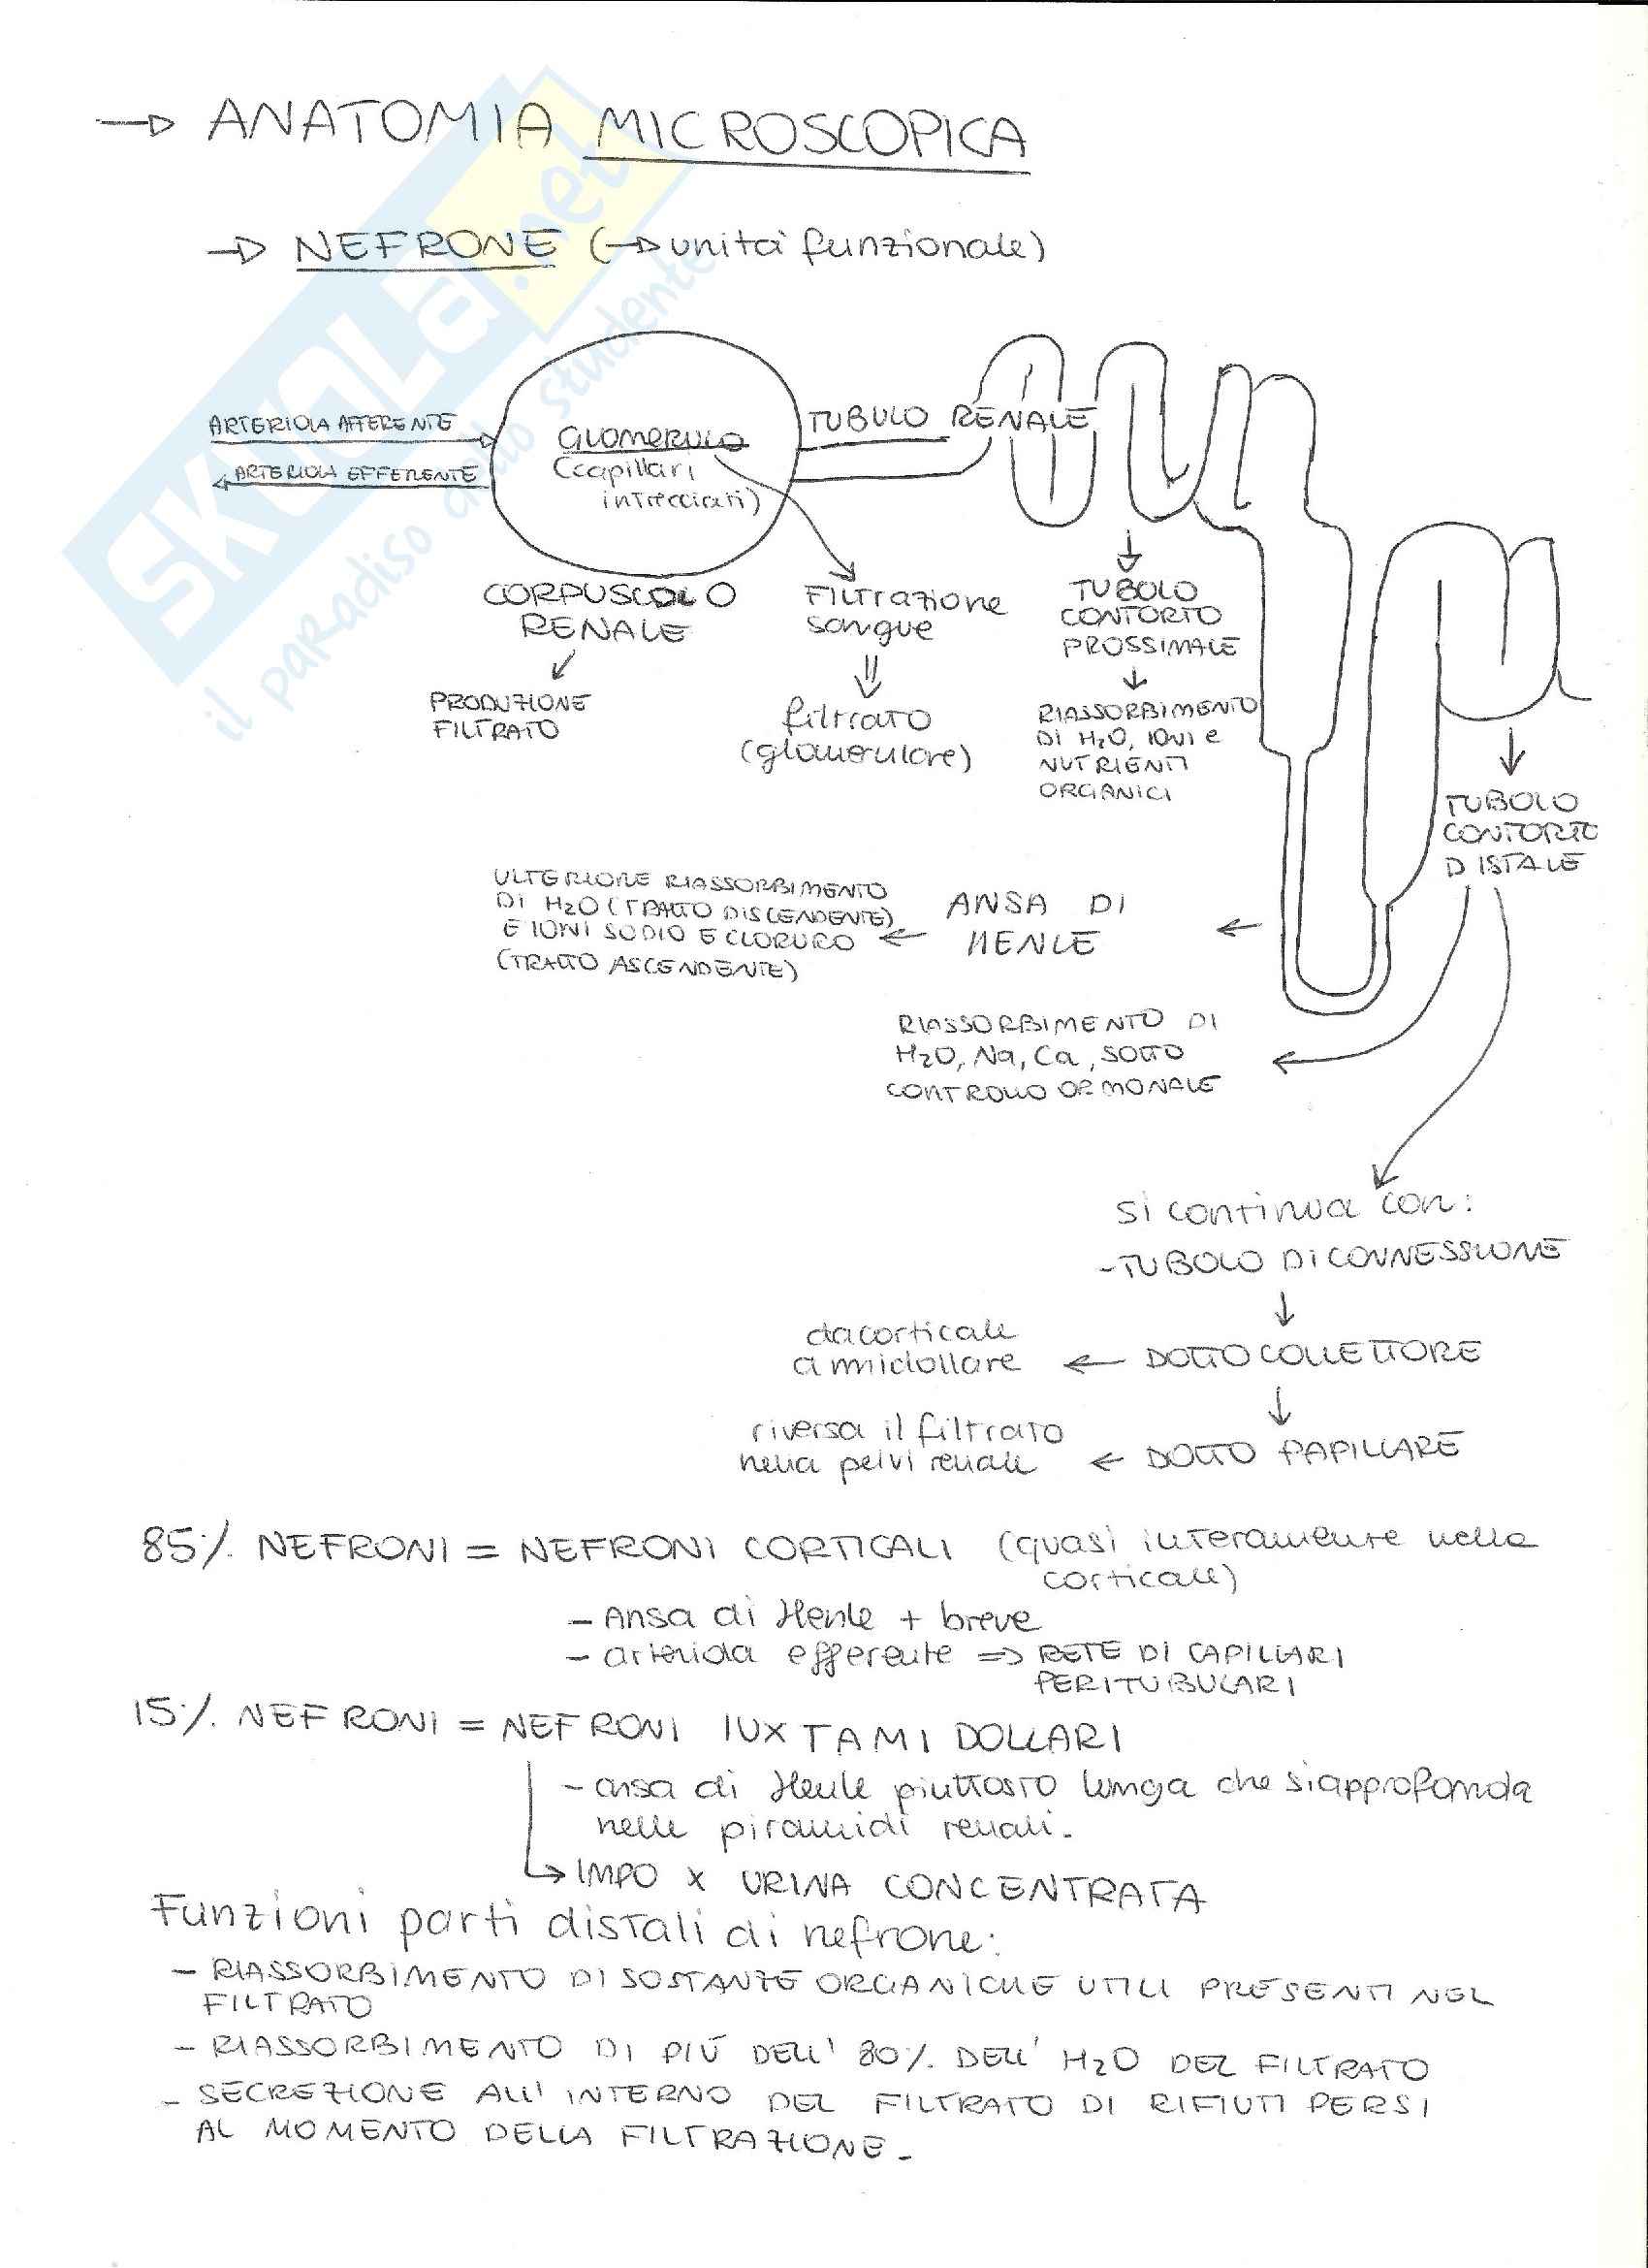 → ANATOMIA MICROSCOPICA
→ NEFRONE (→ unità funzionale)
ARTERIOLA AFFERENTE
ARTERIOLA EFFERENTE
GLOMERULO
(capillari
intrecciati)
TUBULO RENALE
CORPUSCOLO
RENALE
PRODUZIONE
FILTRATO
FILTRAZIONE
sangue
filtrato
(glomerulare)
TUBOLO
CONTORTO
PROSSIMALE
RIASSORBIMENTO
DI H2O, IONI e
NUTRIENTI
ORGANICI
TUBOLO
CONTORTO
DISTALE
ANSA DI
HENLE
ULTERIORE RIASSORBIMENTO
DI H2O (TRATTO DISCENDENTE)
E IONI SODIO E CLORURO
(TRATTO ASCENDENTE)
RIASSORBIMENTO DI
H2O, Na, Ca, SOTTO
CONTROLLO ORMONALE
si continua con:
- TUBOLO DI CONNESSIONE
DOTTO COLLETTORE
da corticale
a midollare
DOTTO PAPILLARE
riversa il filtrato
nella pelvi renale
85% NEFRONI = NEFRONI CORTICALI (quasi interamente nella
corticale)
- Ansa di Henle + breve
- arteriola efferente ⇒ RETE DI CAPILLARI
PERITUBULARI
15% NEFRONI = NEFRONI IUXTAMIDOLLARI
- ansa di Henle piuttosto lunga che si approfonda
nelle piramidi renali.
→ IMPO x URINA CONCENTRATA
Funzioni parti distali di nefrone:
- RIASSORBIMENTO DI SOSTANZE ORGANICHE UTILI PRESENTI NEL
FILTRATO
- RIASSORBIMENTO DI PIÙ DELL' 80% DELL' H2O DEL FILTRATO
- SECREZIONE ALL' INTERNO DEL FILTRATO DI RIFIUTI PERSI
AL MOMENTO DELLA FILTRAZIONE.
SKUOLa.net
il paradiso dello studente